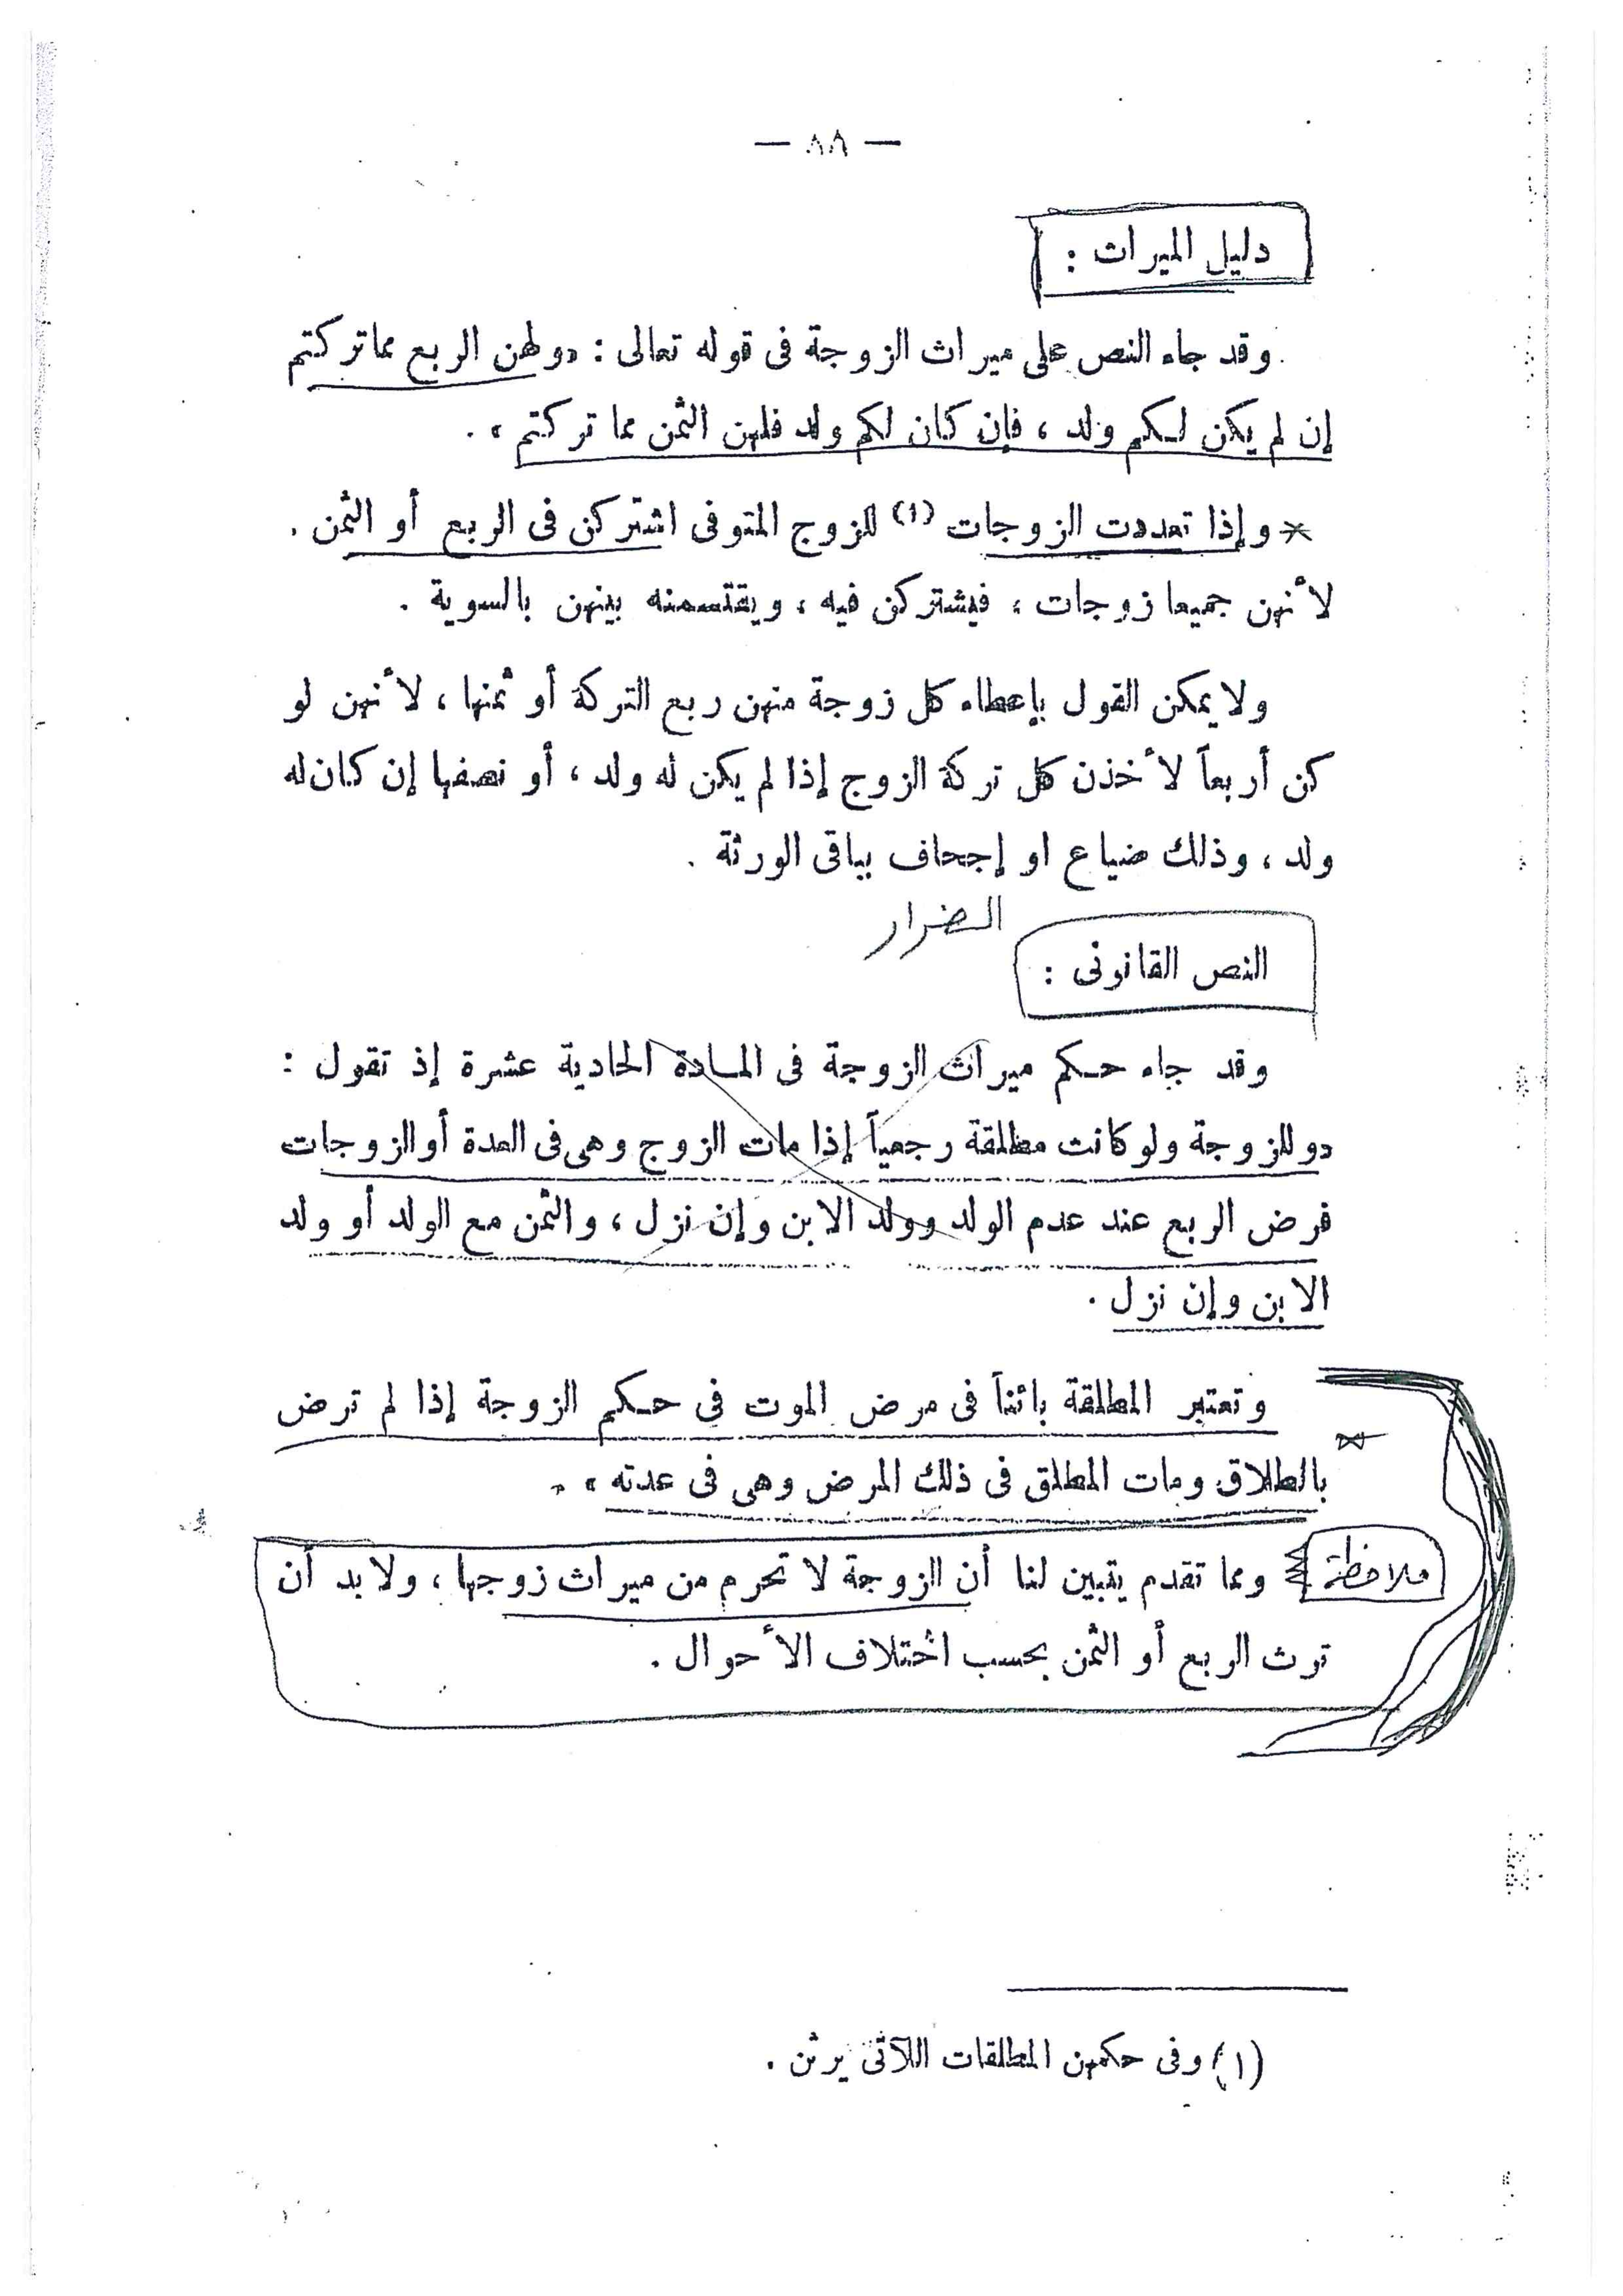 — ٨٨ —
دليل الميراث :
وقد جاء النص على ميراث الزوجة فى قوله تعالى : «ولهن الربع مما تركتم
إن لم يكن لكم ولد ، فإن كان لكم ولد فلهن الثمن مما تركتم » .
* وإذا تعددت الزوجات (١) للزوج المتوفى اشتركن فى الربع أو الثمن .
لأنهن جميعا زوجات ، فيشتركن فيه ، ويقتسمنه بينهن بالسوية .
ولا يمكن القول بإعطاء كل زوجة منهن ربع التركة أو ثمنها ، لأنهن لو
كن أربعاً لأخذن كل تركة الزوج إذا لم يكن له ولد ، أو نصفها إن كان له
ولد ، وذلك ضياع او إجحاف بباقى الورثة .
الضرار
النص القانونى :
وقد جاء حكم ميراث الزوجة فى المادة الحادية عشرة إذ تقول :
«وللزوجة ولو كانت مطلقة رجعياً إذا مات الزوج وهى فى العدة أو الزوجات
فرض الربع عند عدم الولد وولد الابن وإن نزل ، والثمن مع الولد أو ولد
الابن وإن نزل .
وتعتبر المطلقة بائناً فى مرض الموت فى حكم الزوجة إذا لم ترض
بالطلاق ومات المطلق فى ذلك المرض وهى فى عدته » .
ملاحظة ومما تقدم يتبين لنا أن الزوجة لا تحرم من ميراث زوجها ، ولا بد أن
ترث الربع أو الثمن بحسب اختلاف الأحوال .
(١) وفى حكمهن المطلقات اللآتى يرثن .